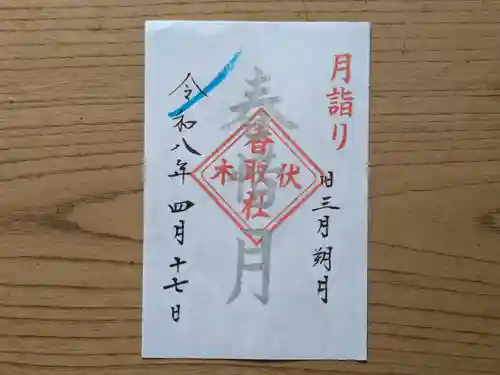 月詣り
旧三月朔月
春惜月
伏木
香取社
令和八年四月十七日